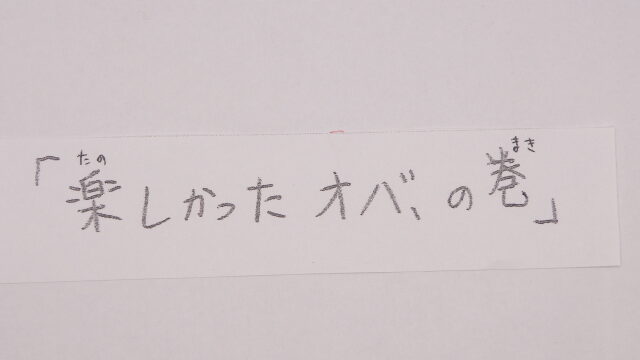 「楽しかった オバ、の巻」
たの
まき